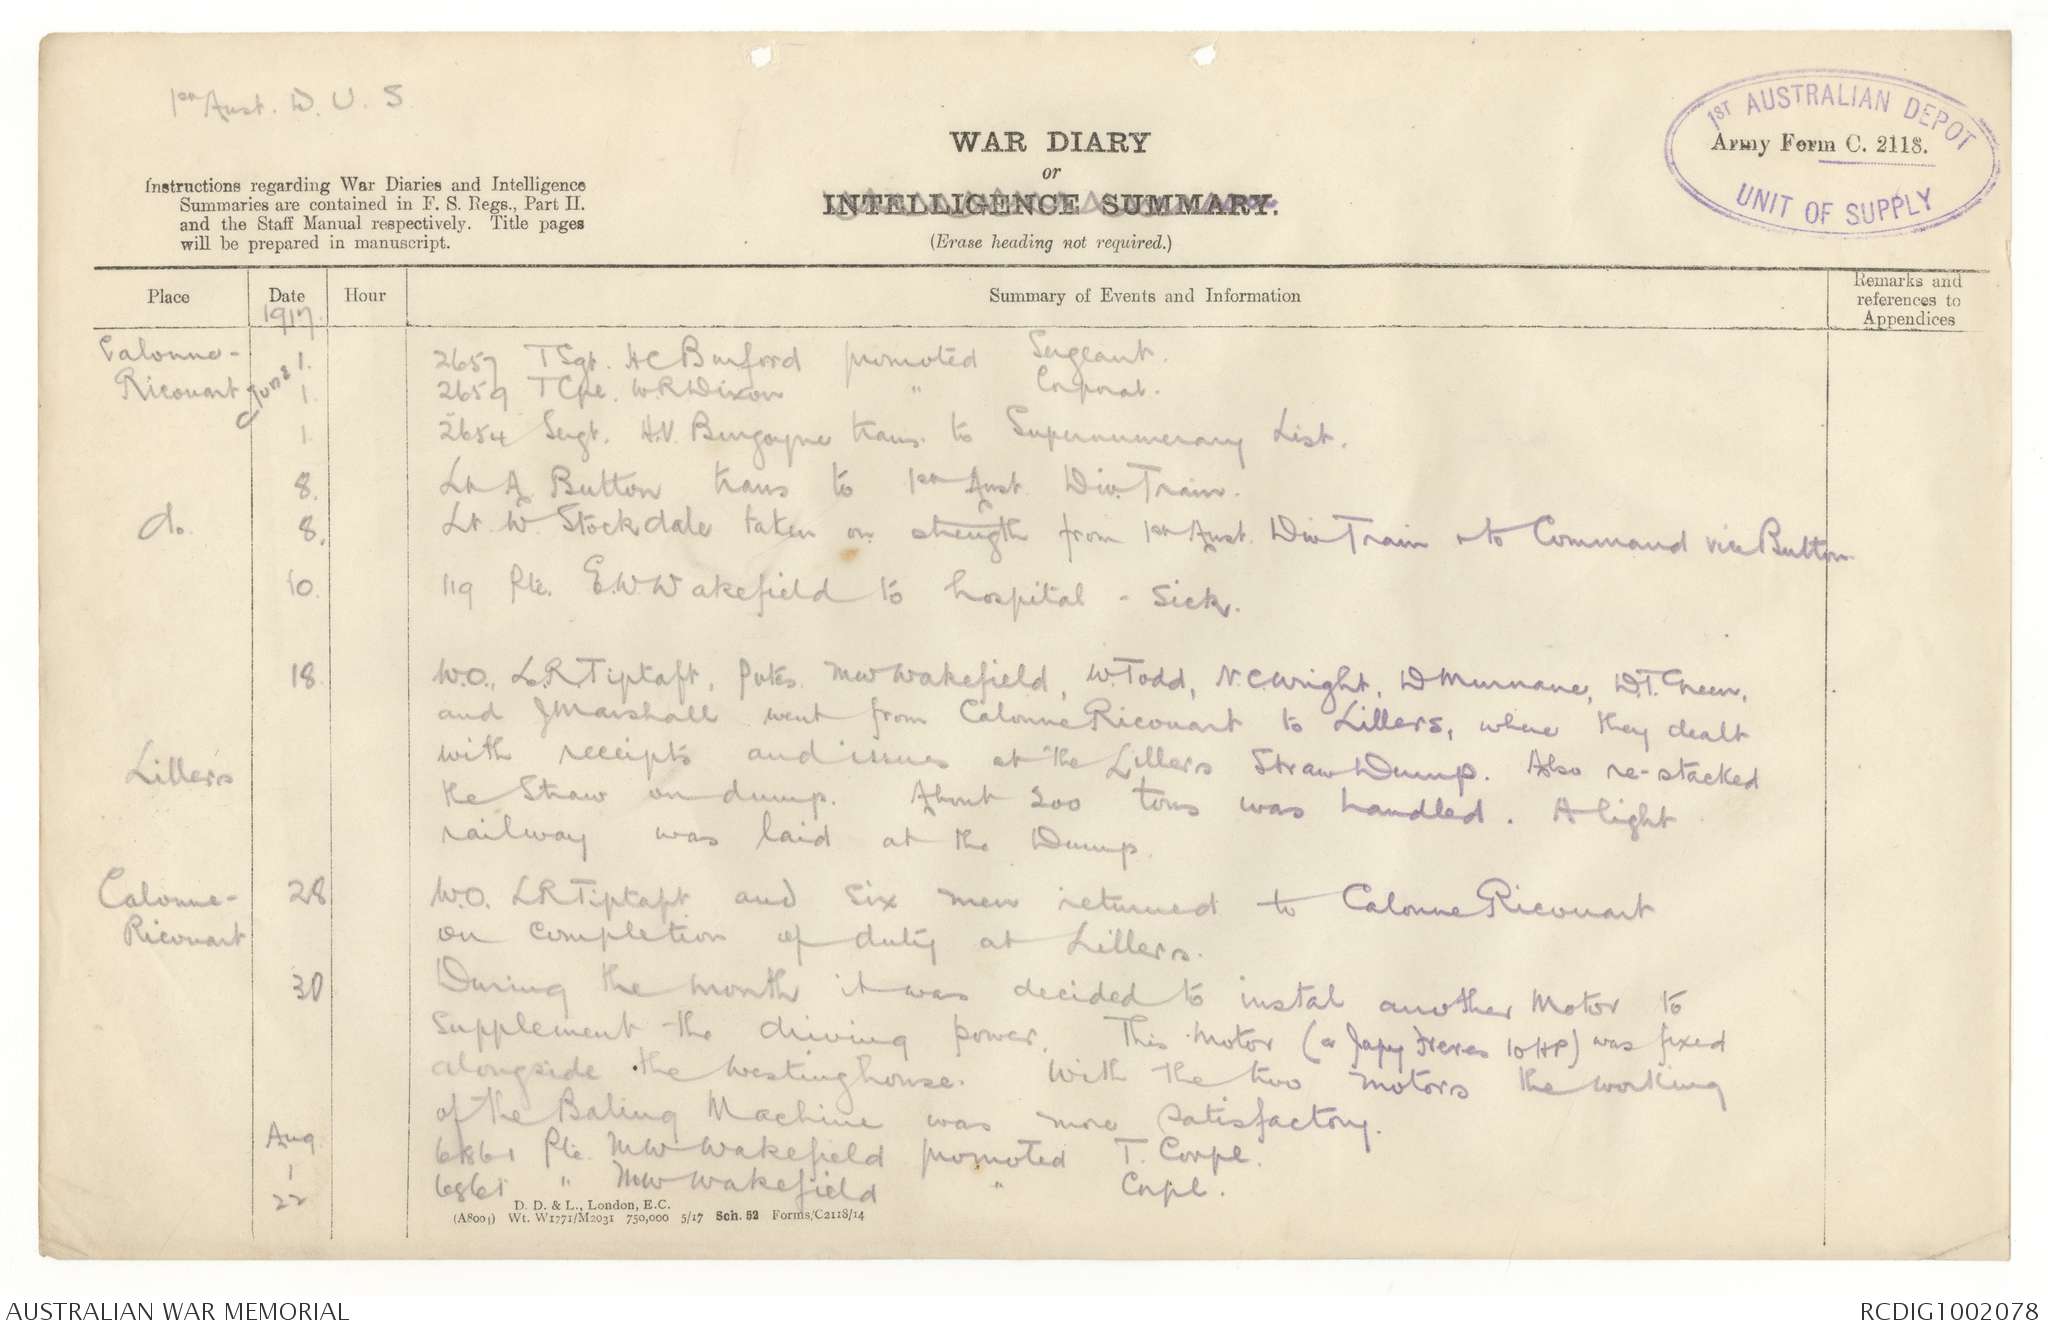 1st Aust. D. U. S.
1ST AUSTRALIAN DEPOT
UNIT OF SUPPLY
Army Form C. 2118.
WAR DIARY
or
INTELLIGENCE SUMMARY.
(Erase heading not required.)
Instructions regarding War Diaries and Intelligence
Summaries are contained in F. S. Regs., Part II.
and the Staff Manual respectively. Title pages
will be prepared in manuscript.
Place Date Hour Summary of Events and Information Remarks and references to Appendices
1917.
Calonne- June 1. 2657 T Sgt. HC Burford promoted Sergeant.
Ricouart 1. 2659 T Cpl. W.R Dixon " Corporal.
1. 2654 Sergt. H.V. Burgoyne trans. to Supernumerary List.
8. Lt A Button trans to 1st Aust Div. Train.
do. 8. Lt. W Stockdale taken on strength from 1st Aust. Div Train & to Command vice Button
10. 119 Pte. E.W. Wakefield to hospital - Sick.
18. W.O. L.R. Tiptaft, Pvtes. MW Wakefield, W. Todd, N.C. Wright, D Murnane, D.T. Green,
and J Marshall went from Calonne Ricouart to Lillers, where they dealt
Lillers with receipts and issues at the Lillers Straw Dump. Also re-stacked
the Straw on dump. About 200 tons was handled. A light
railway was laid at the Dump.
Calonne- 28 W.O. LR Tiptaft and six men returned to Calonne Ricouart
Ricouart on completion of duty at Lillers.
30 During the month it was decided to instal another Motor to
supplement the driving power. This Motor (a Japy Freres 10 HP) was fixed
alongside the Westinghouse. With the two motors the working
of the Baling Machine was more satisfactory.
Aug 1 6861 Pte. MW Wakefield promoted T. Corpl.
22 6861 " MW Wakefield " Corpl.
D. D. & L., London, E.C.
(A8004) Wt. W1771/M2031 750,000 5/17 Sch. 52 Forms/C2118/14
AUSTRALIAN WAR MEMORIAL
RCDIG1002078